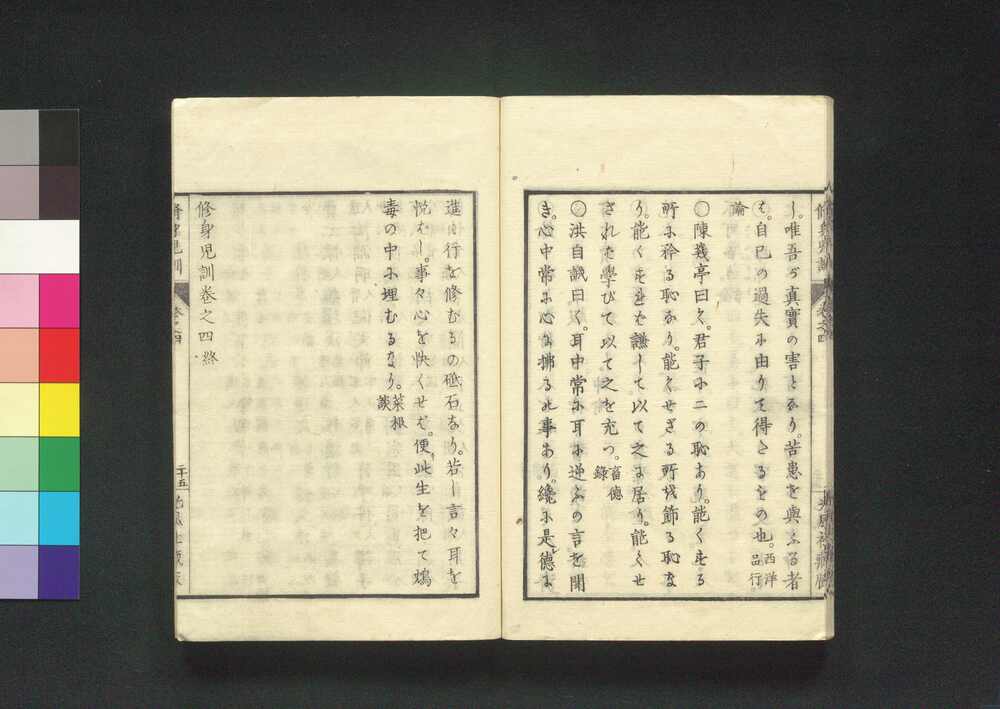 し。唯吾ガ真實の害となり。苦患を與ふる者
は。自己の過失に由りて得たるもの也。西洋品行
論
〇陳幾亭曰く。君子に二の恥あり。能くする
所に矜る恥なり。能くせざる所を飾る恥な
り。能くするを謙して以て之に居り。能くせ
ざれば學びて以て之を充つ。畜德錄
〇洪自誠曰く。耳中常に耳に逆ふの言を聞
き。心中常に心に拂るの事あり。纔に是德に
進み行を修むるの砥石なり。若し言々耳を
悦ばし。事々心を快くせば。便此生を把て鴆
毒の中に埋むるなり。菜根談
修身児訓巻之四終
修身児訓
巻之四
二十五